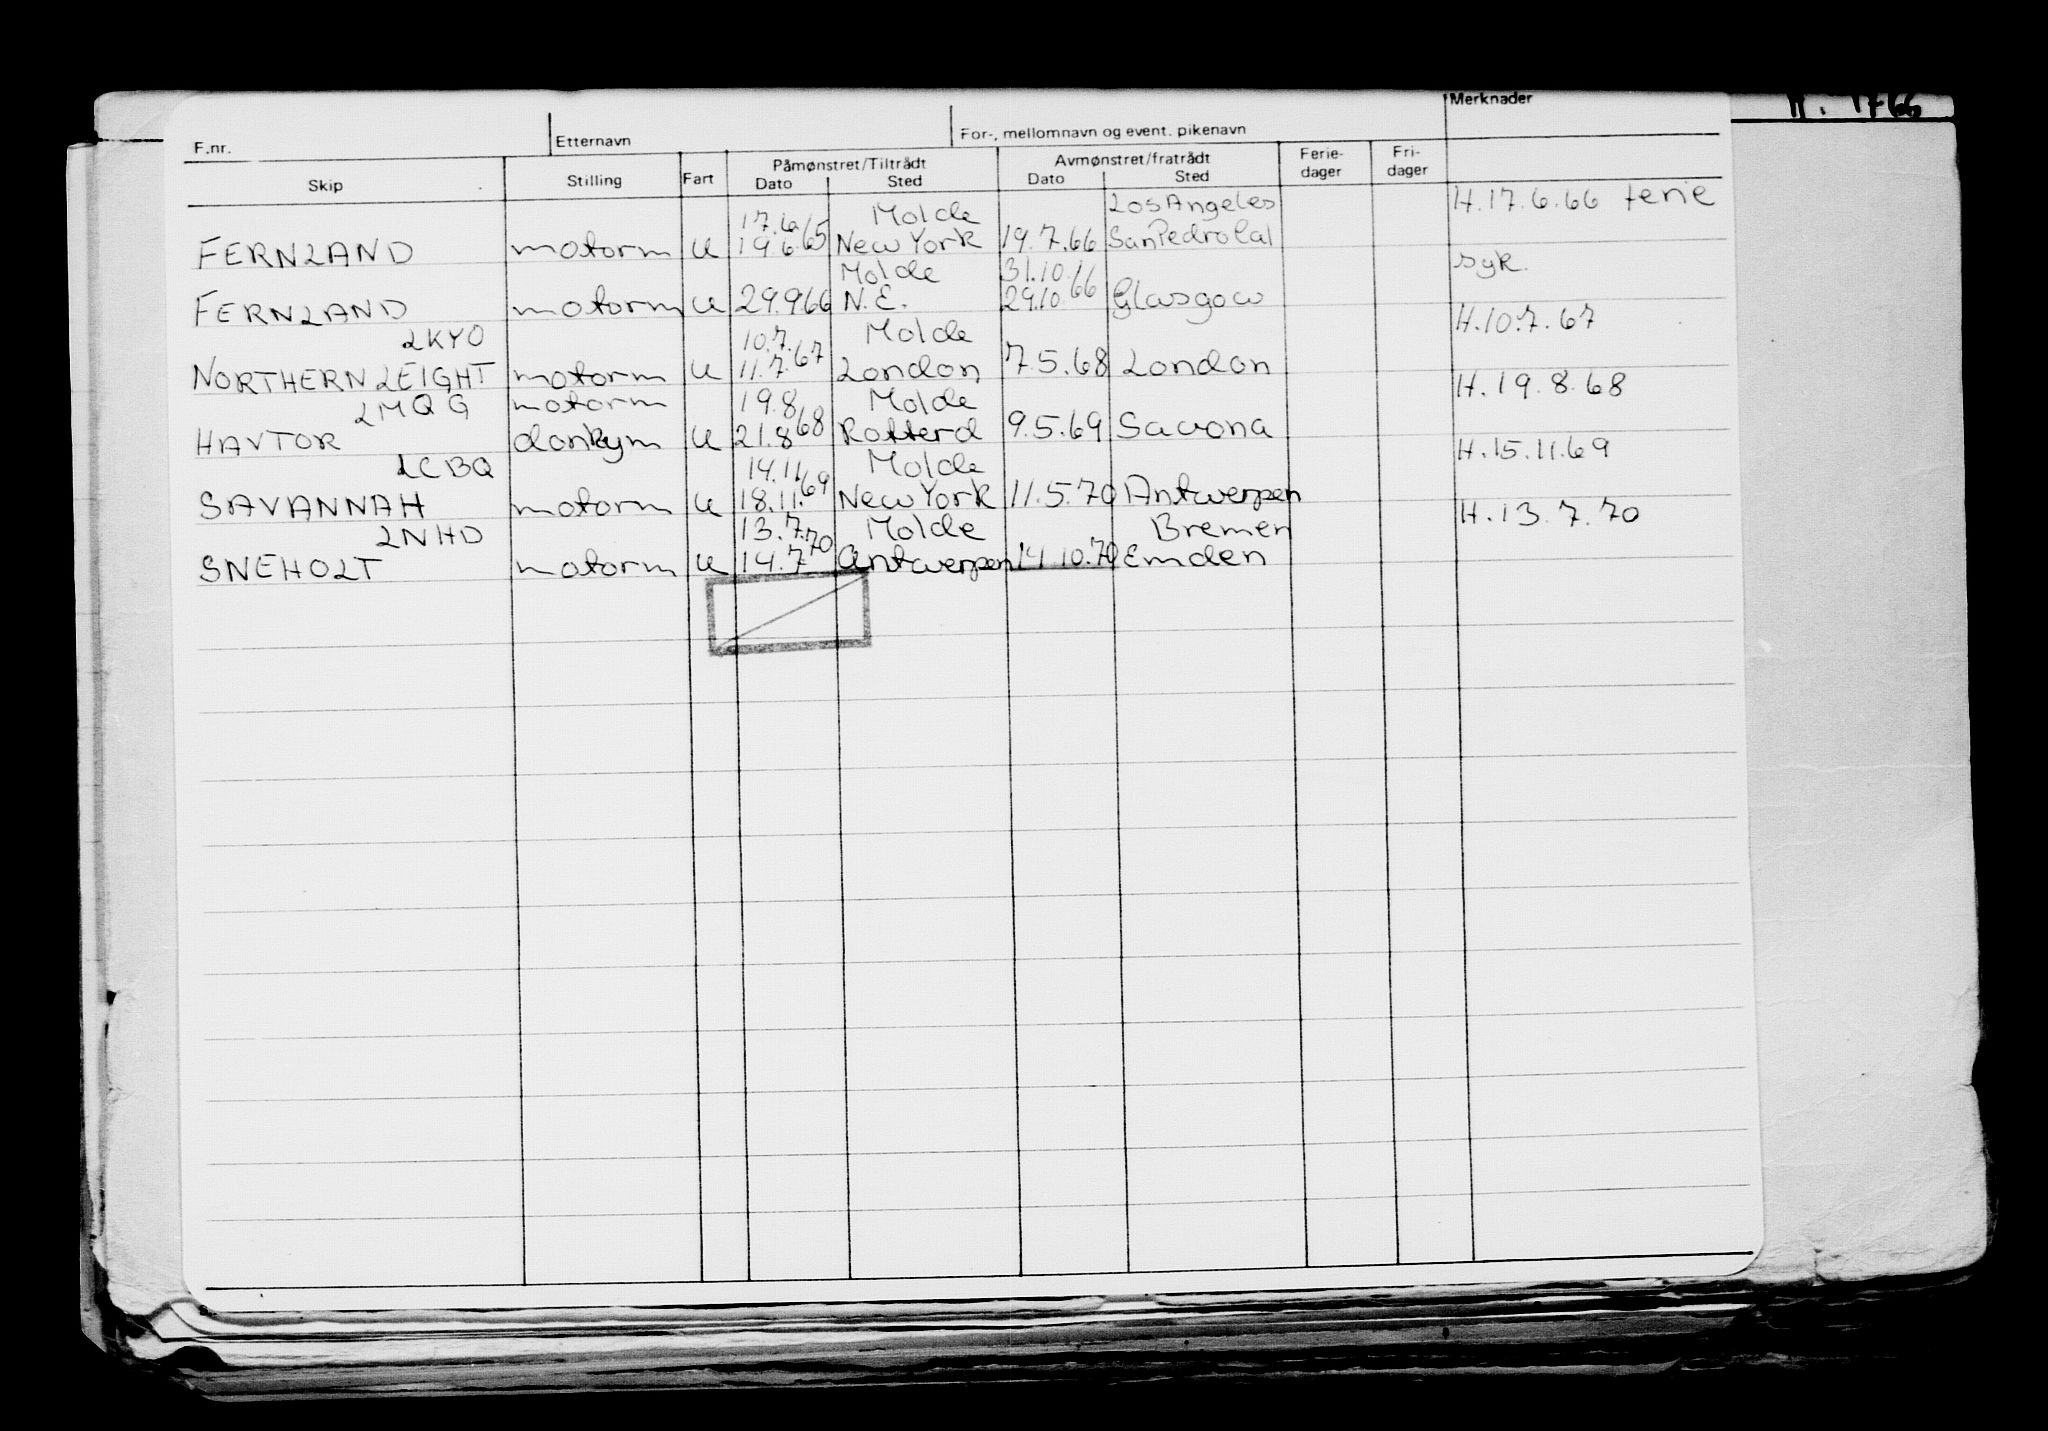 Merknader
F.nr. Etternavn For-, mellomnavn og event. pikenavn
Påmønstret/Tiltrådt Avmønstret/fratrådt Ferie- Fri-
Skip Stilling Fart Dato Sted Dato Sted dager dager
17.6 Molde Los Angeles H.17.6.66 ferie
FERNLAND motorm u 19.6.65 New York 19.7.66 San Pedro Cal
Molde 31.10.66 syk.
FERNLAND motorm u 29.9.66 N.E. 29.10.66 Glasgow
LKYO 10.7. Molde H.10.7.67
NORTHERN LEIGHT motorm u 11.7.67 London 7.5.68 London
LMQG motorm 19.8 Molde H.19.8.68
HAVTOR donkym u 21.8.68 Rotterd 9.5.69 Savona
LCBQ 14.11 Molde H.15.11.69
SAVANNAH motorm u 18.11.69 New York 11.5.70 Antwerpen
LNHD 13.7.70 Molde Bremen H.13.7.70
SNEHOLT motorm u 14.7 Antwerpen 14.10.70 Emden